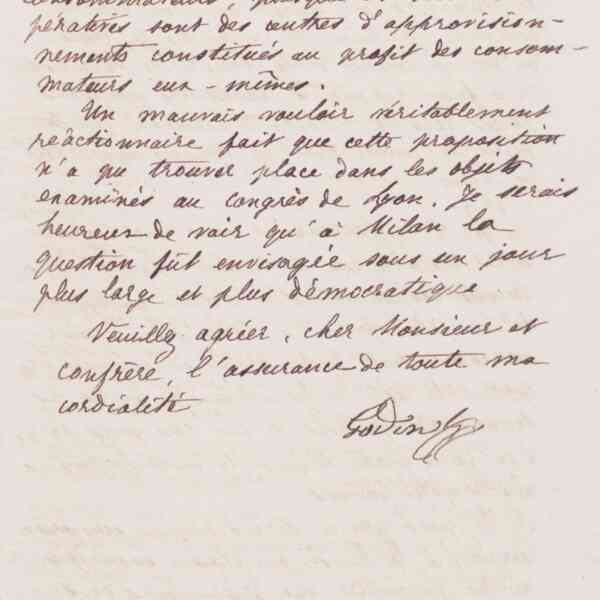 pératives sont des centres d'approvision-
nements constitués au profit des consom-
mateurs eux-mêmes.
Un mauvais vouloir véritablement
reáctionnaire fait que cette proposition
n'a pu trouver place dans les objets
examinés au congrès de Lyon. Je serais
heureux de voir qu'à Milan la
question fût envisagée sous un jour
plus large et plus démocratique.
Veuillez agréer, cher Monsieur et
confrère, l'assurance de toute ma
cordialité
Godin